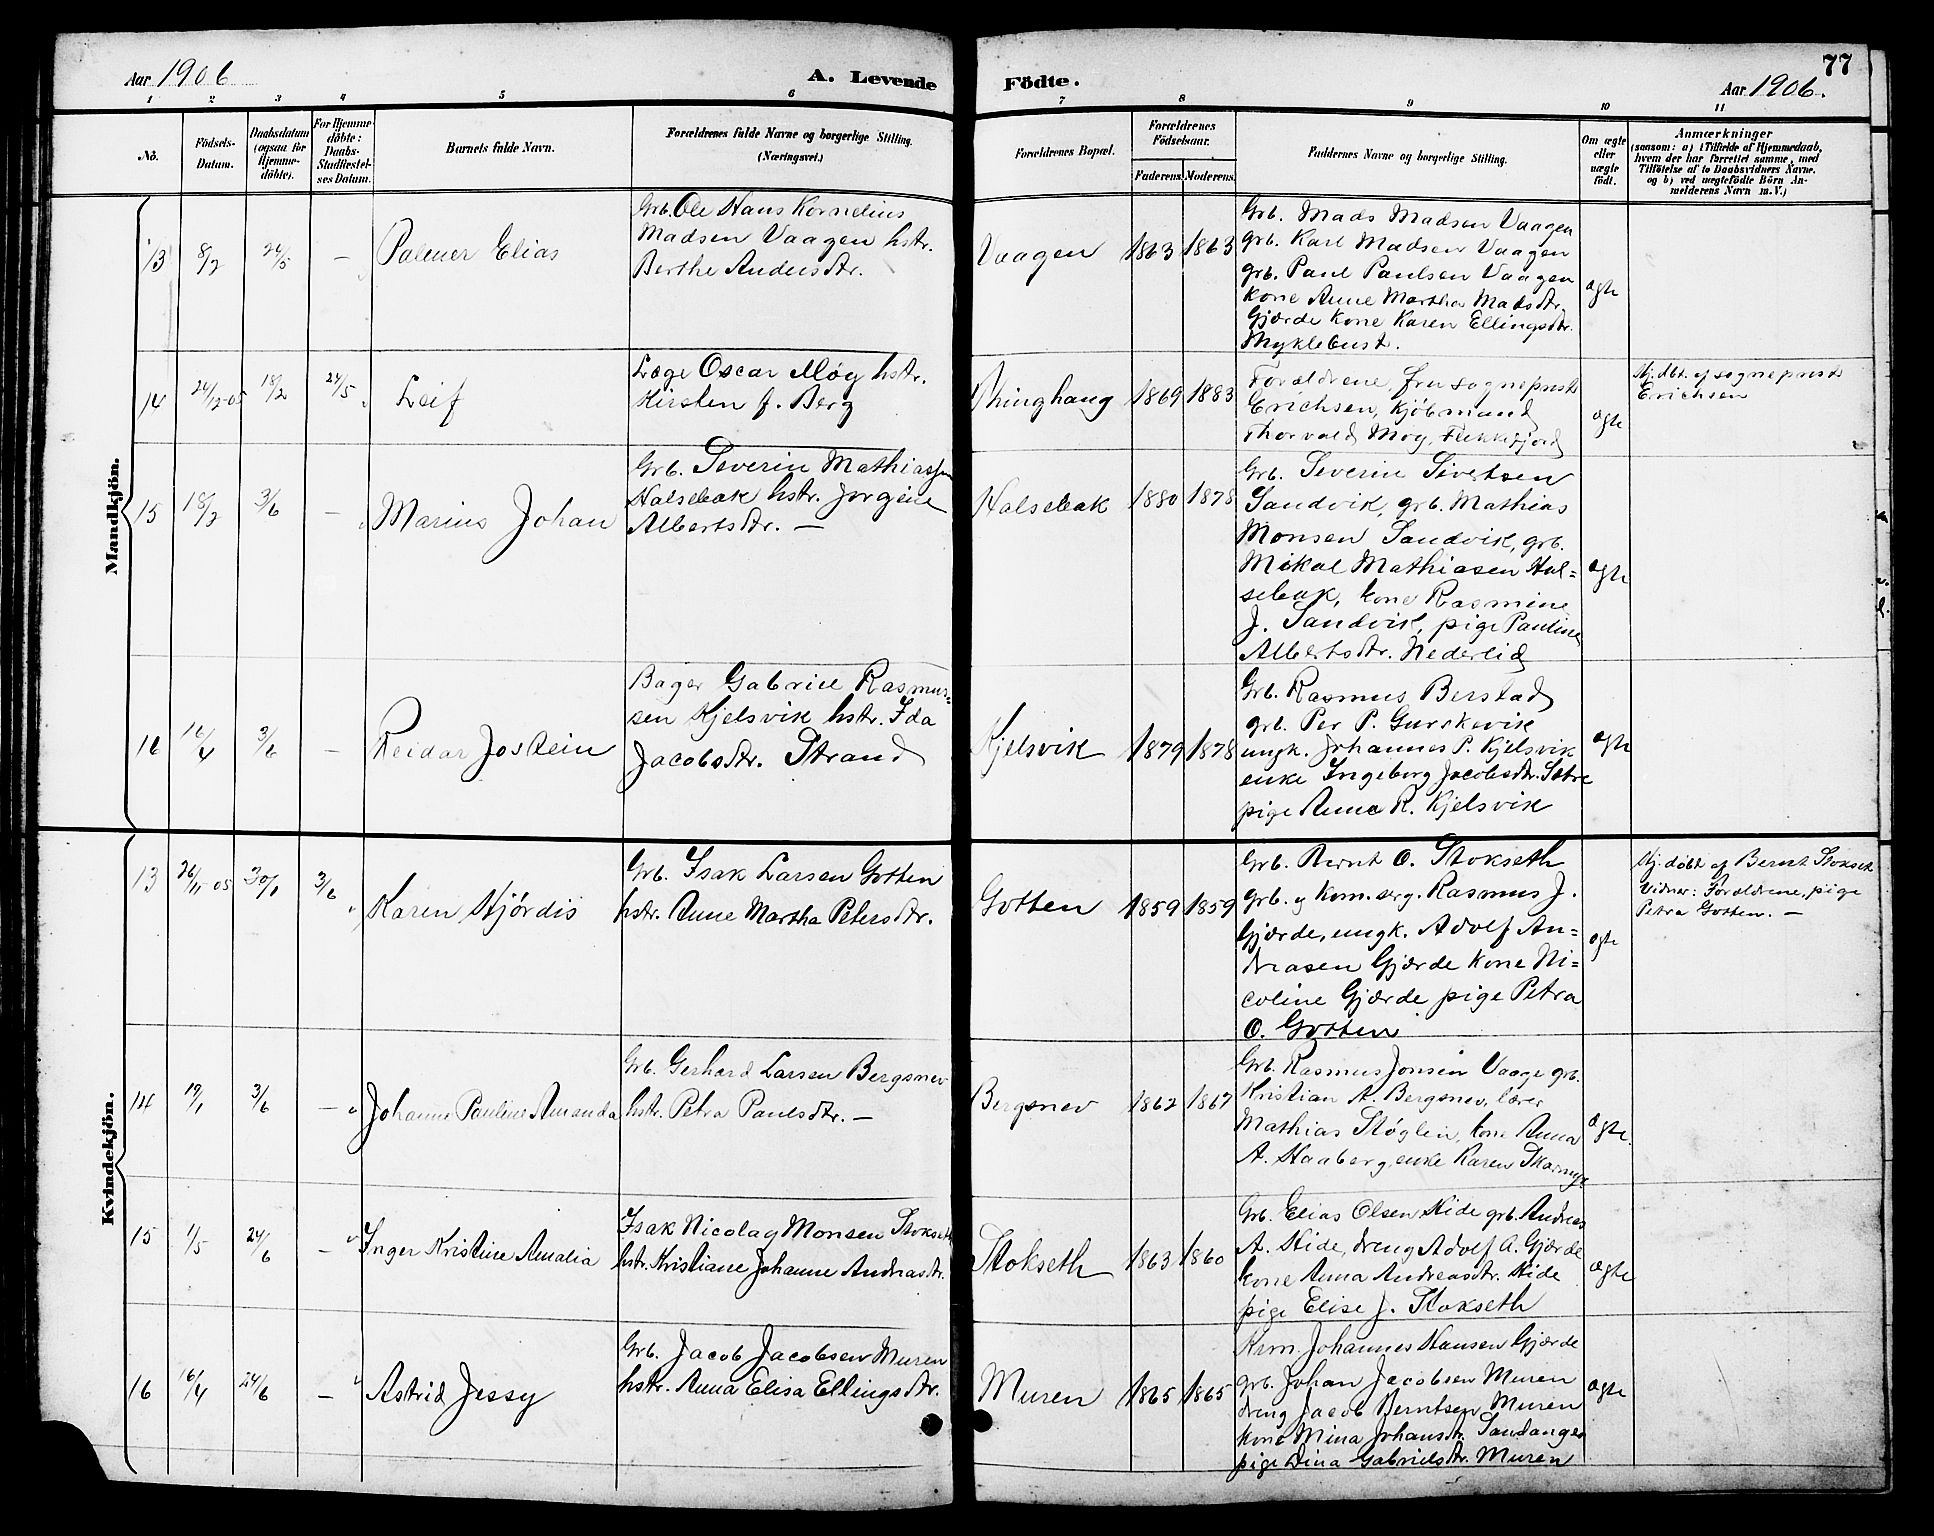 Aar 1906
A. Levende
Födte.
77
Aar 1906.
1 2 3 4 5 6 7 8 9 10 11
No.
Födsels-
Datum.
Daabsdatum
(ogsaa for
Hjemme-
döbte).
For Hjemme-
döbte:
Daabs-
Stadfæstel-
ses Datum.
Barnets fulde Navn.
Forældrenes fulde Navne og borgerlige Stilling.
(Næringsvei.)
Forældrenes Bopæl.
Forældrenes
Födselsaar.
Faderens. Moderens.
Faddernes Navne og borgerlige Stilling.
Om ægte
eller
uægte
födt.
Anmærkninger
(saasom: a) i Tilfælde af Hjemmedaab,
hvem der har forrettet samme, med
Tilföielse af to Daabsvidners Navne.
og b) ved uægtefödte Börn An-
melderens Navn m. V.)
Mandkjön.
13 8/2 24/5 — Palmer Elias
Grb. Ole Hans Kornelius
Madsen Vaagen hstr.
Berthe Andersdtr.
Vaagen 1863 1863
Grb. Mads Madsen Vaagen
grb. Karl Madsen Vaagen
grb. Paul Paulsen Vaagen
kone Anne Martha Madsdtr.
Gjærde kone Karen Ellingsdtr.
Myklebust.
ægte
14 24/12-05 18/2 24/5 Leif
Læge Oscar Møy hstr.
Kirsten f. Berg
Thinghaug 1869 1883
Forældrene, fru sogneprest
Erichsen, Kjöbmand
Thorvald Moy, Flekkefjord
ægte
Hj. dbt. af sogneprest
Erichsen
15 18/2 3/6 — Marius Johan
Grb. Severin Mathiassen
Halsebak hstr. Jørgine
Albertsdtr. —
Halsebak 1880 1878
Grb. Severin Sivertsen
Sandvik, grb. Mathias
Monsen Sandvik, grb.
Mikal Mathiasen Hal=
sebak, kone Rasmine
J. Sandvik, pige Pauline
Albertsdtr. Nederlid
ægte
16 16/4 3/6 — Reidar Jostein
Bager Gabriel Rasmus=
sen Kjelsvik hstr. Ida
Jacobsdtr. Strand
Kjelsvik 1879 1878
Grb. Rasmus Berstad
grb. Per P. Gurskevik
ungk. Johannes P. Kjelsvik
enke Ingeborg Jacobsdtr. Sætre
pige Anna R. Kjelsvik
ægte
Kvindekjön.
13 26/11-05 30/1 3/6 Karen Hjördis
Grb. Isak Larsen Gotten
hstr. Anne Martha Petersdtr.
Gotten 1859 1859
Grb. Bernt O. Stokseth
grb. og kom.erg. Rasmus J.
Gjærde, ungk. Adolf An=
dreasen Gjærde kone Ni=
coline Gjærde pige Petra
O. Gotten
ægte
Hj. döbt af Bernt Stokset
Vidner: Forældrene, pige
Petra Gotten. —
14 19/1 3/6 — Johanne Pauline Amanda
Grb. Gerhard Larsen Bergsnev
hstr. Petra Paulsdtr. —
Bergsnev 1862 1867
Grb. Rasmus Jonsen Vaage grb.
Kristian A. Bergsnev, lærer
Mathias Støylen, kone Anna
A. Haaberg, enke Karen
ægte.
15 1/5 24/6 — Inger Kristine Amalia
Isak Nicolay Monsen Stokseth
hstr. Kristiane Johanne Andreasdtr.
Stokseth 1863 1860
Grb. Elias Olsen Hide grb. Andreas
A. Hide, dreng Adolf A. Gjærde
kone Anna Andreasdtr. Hide
pige Elise J. Stokseth
ægte
16 16/4 24/6 — Astrid Jessy
Grb. Jacob Jacobsen Muren
hstr. Anna Elisa Ellingsdtr.
Muren 1865 1865
Krm. Johannes Hansen Gjærde
grb. Johan Jacobsen Muren
dreng Jacob Berntsen Muren
kone Mina Johansdtr. Sandanger
pige Dina Gabrielsdtr. Muren
ægte